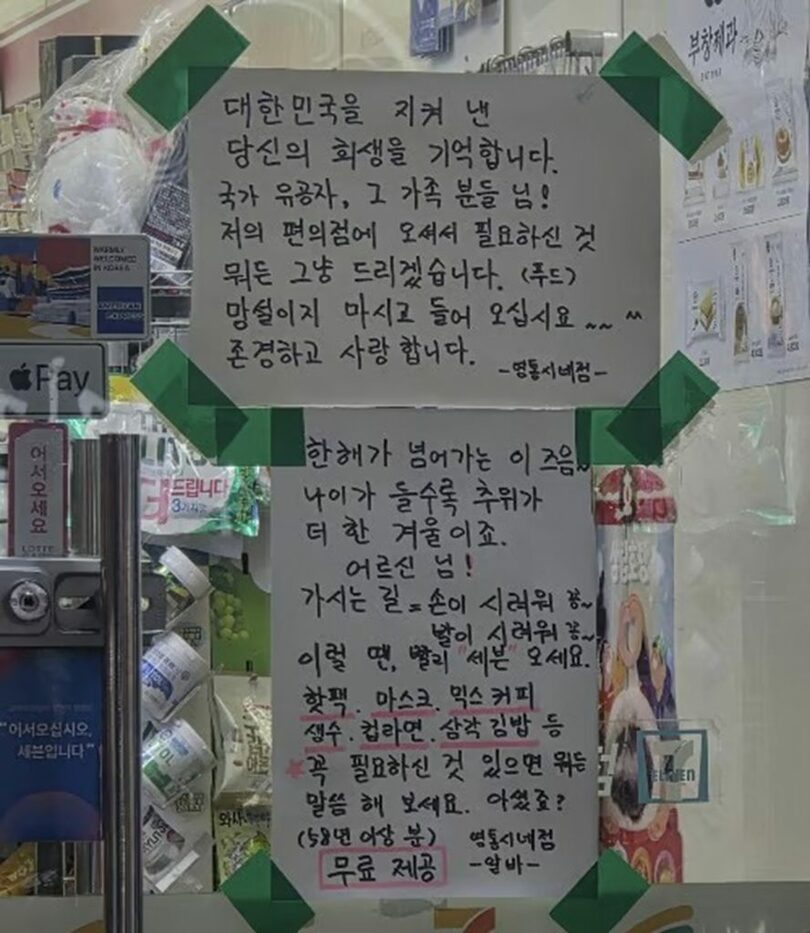 대한민국을 지켜 낸
당신의 희생을 기억합니다.
국가 유공자, 그 가족 분들 님!
저의 편의점에 오셔서 필요하신 것
뭐든 그냥 드리겠습니다. (푸드)
망설이지 마시고 들어 오십시요 ~~ ^^
존경하고 사랑합니다.
-영통시네점-
한해가 넘어가는 이 즈음~
나이가 들수록 추위가
더 한 겨울이죠.
어르신 님!
가시는 길 = 손이 시려워 꽁~
발이 시려워 꽁~
이럴 땐, 빨리 "세븐" 오세요.
핫팩. 마스크. 믹스커피
생수. 컵라면. 삼각김밥 등
꼭 필요하신 것 있으면 뭐든
말씀 해 보세요. 아셨죠?
(58년 이상 분)
영통시네점
-알바-
무료 제공
부창제과
WARMLY
WELCOMED
IN KOREA
AMERICAN
EXPRESS
Pay
어서오세요
LOTTE
드립니다
"어서오십시오,
세븐입니다"
ELEVEN